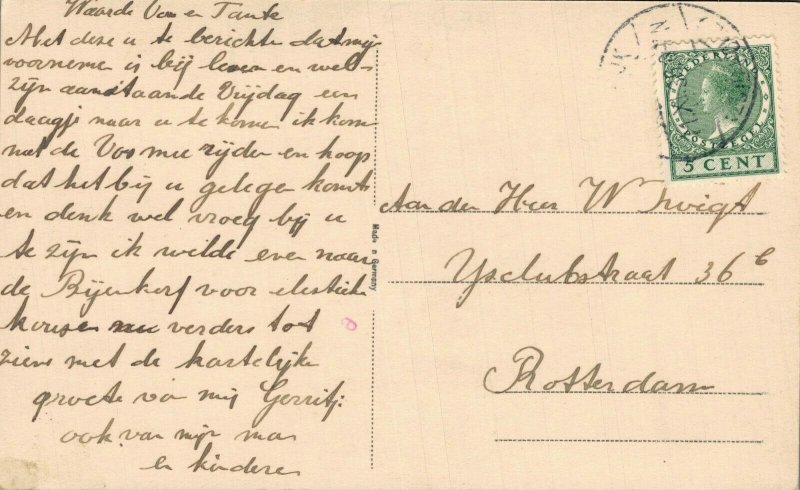 Waarde Oom en Tante
Met deze u te berichten dat mij
voornemen is bij leven en wel-
zijn aanstaande Vrijdag een
daagje naar u te komen ik kom
met de Vos mee rijden en hoop
dat het bij u gelegen komt
en denk wel vroeg bij u
te zijn ik wilde even naar
de Bijenkorf voor elastiek
kousen nu verders tot
ziens met de hartelijke
groete van mij Gerritj:
ook van mijn man
en kinderen
Made in Germany
NEDERLAND
POSTZEGEL
5 CENT
Aan den Heer W Twigt
Ysclubstraat 36 b
Rotterdam